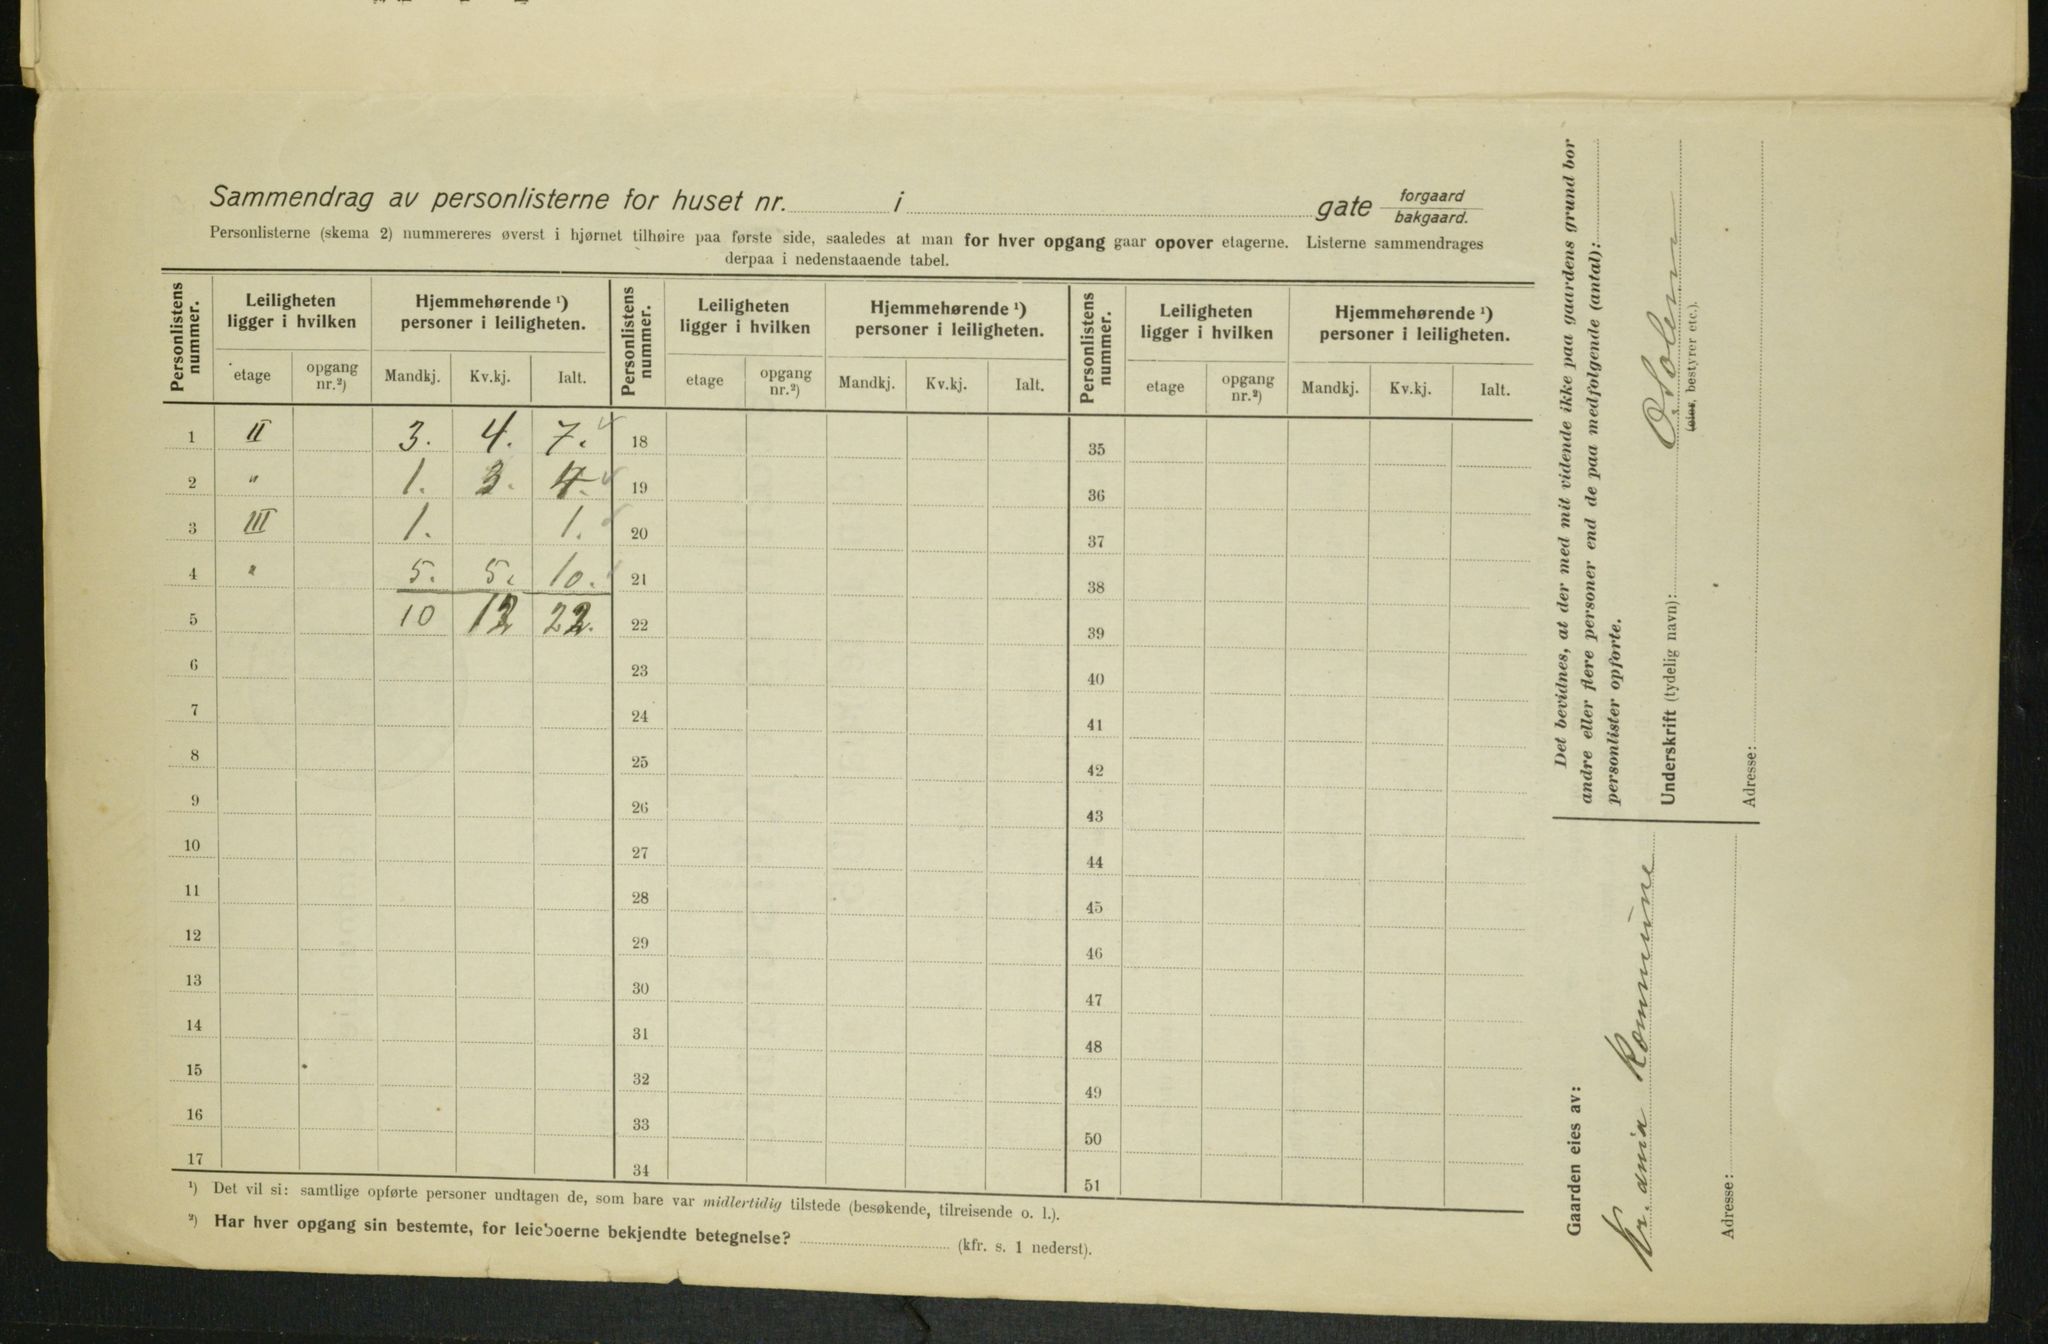 Sammendrag av personlisterne for huset nr. i gate forgaard
bakgaard.
Personlisterne (skema 2) nummereres øverst i hjørnet tilhøire paa første side, saaledes at man for hver opgang gaar opover etagerne. Listerne sammendrages
derpaa i nedenstaaende tabel.
Personlistens nummer. Leiligheten ligger i hvilken Hjemmehørende ¹) personer i leiligheten. Personlistens nummer. Leiligheten ligger i hvilken Hjemmehørende ¹) personer i leiligheten. Personlistens nummer. Leiligheten ligger i hvilken Hjemmehørende ¹) personer i leiligheten.
etage opgang nr.²) Mandkj. Kv.kj. Ialt. etage opgang nr.²) Mandkj. Kv.kj. Ialt. etage opgang nr.²) Mandkj. Kv.kj. Ialt.
1 II 3. 4. 7. 18 35
2 " 1. 3. 4. 19 36
3 III 1. 1. 20 37
4 " 5. 5. 10. 21 38
5 10 12 22. 22 39
6 23 40
7 24 41
8 25 42
9 26 43
10 27 44
11 28 45
12 29 46
13 30 47
14 31 48
15 32 49
16 33 50
17 34 51
¹) Det vil si: samtlige opførte personer undtagen de, som bare var midlertidig tilstede (besøkende, tilreisende o. l.).
²) Har hver opgang sin bestemte, for leieboerne bekjendte betegnelse? (kfr. s. 1 nederst).
Det bevidnes, at der med mit vidende ikke paa gaardens grund bor
andre eller flere personer end de paa medfølgende (antal):
personlister opførte.
Underskrift (tydelig navn): O. Solem
(eier, bestyrer etc.).
Adresse:
Gaarden eies av:
Kr.ania Kommune
Adresse: